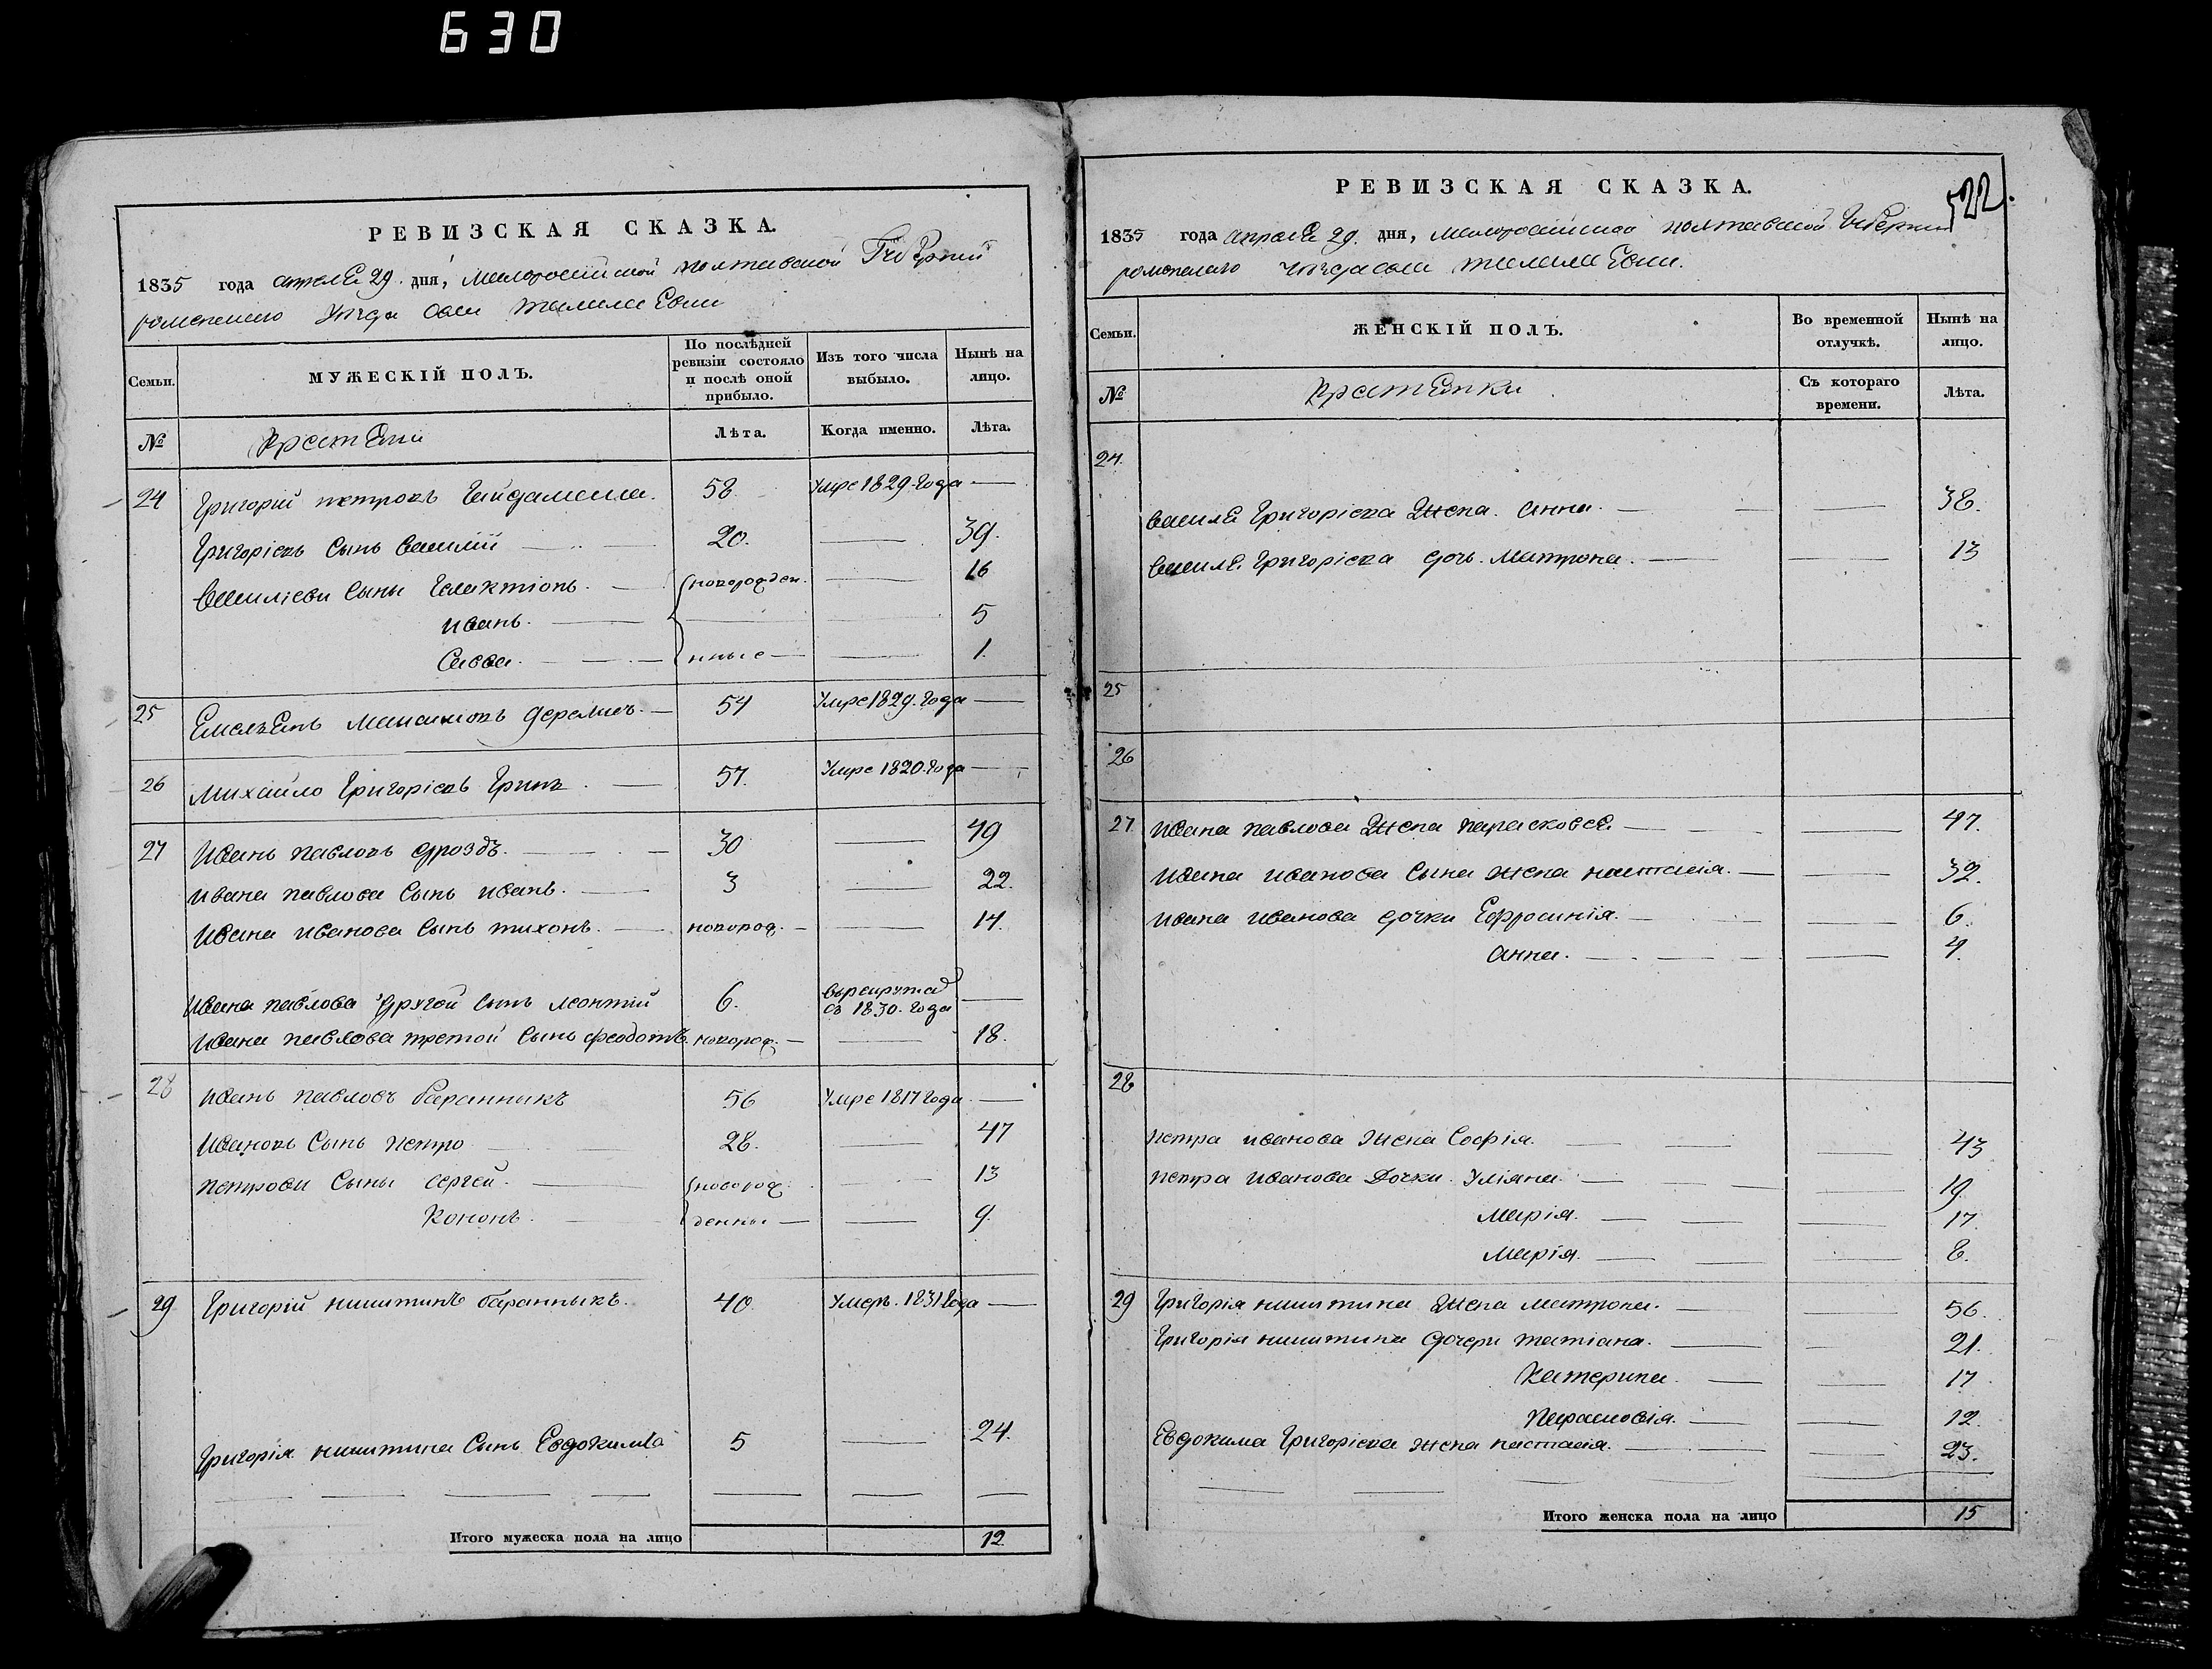 630
РЕВИЗСКАЯ СКАЗКА.
1835 года апреле 29. дня, Малоросийской полтавской Губерний
роменского Уезда
МУЖЕСКІЙ ПОЛЪ.
Семьи.
По послѣдней ревизіи состояло и послѣ оной прибыло.
Изъ того числа выбыло.
Нынѣ на лицо.
№
Лѣта.
Когда именно.
Лѣта.
24 Григорій петровъ Гайдамака. 58. Умре 1829. Года —
Григоріевъ Сынъ Василій 20. — 39.
Василіеви Сыны Галактіонъ. новорожден. — 16
иванъ. — 5
Савва. нные — 1.
25 Емельянъ 54 Умре 1829. Года —
26 Михайло Григоріевъ 57. Умре 1820. Года —
27 Иванъ павловъ дроздъ. 30 — 49
ивана павлова Сынъ иванъ. 3 — 22.
Ивана иванова Сынъ тихонъ. новорож. — 14.
Ивана павлова другой Сынъ леонтий 6. врекруты с 1830. Года —
Ивана павлова третой Сынъ феодотъ. новорож. — 18.
28 иванъ павловъ баранныкъ 56 Умре 1817 Года —
Ивановъ Сынъ петро 28. — 47
петрови Сыны сергей. новорож — 13
Кононъ. денны — 9.
29 Григорій никитинъ баранныкъ. 40 Умеръ. 1831 Года —
Григорія никитина Сынъ Евдокимъ 5 — 24.
Итого мужеска пола на лицо 12.
522.
РЕВИЗСКАЯ СКАЗКА.
1835 года апреле 29. дня, Малоросийской полтавской Губернии
роменского уезда
Семьи.
ЖЕНСКІЙ ПОЛЪ.
Во временной отлучкѣ.
Нынѣ на лицо.
№
Съ котораго времени.
Лѣта.
24.
Василя Григоріева Жена. Анна. — 38.
Василя Григоріева дочь. Матрона. — 13
25
26
27 Ивана павлова Жена парасковея. — 47.
Ивана иванова Сына жена настасія. — 32.
Ивана иванова дочки Ефросинія. — 6.
анна. — 4.
28
петра иванова Жена Софія. — 43
петра иванова Дочки. Уліяна. — 19.
Марія. — 17.
Марія. — 8.
29 Григорія никитина Жена матрона. — 56.
Григорія никитина дочери татіана. — 21.
Катерина. — 17.
Парасковія. — 12.
Евдокима Григоріева жена настасія. — 23.
Итого женска пола на лицо 15